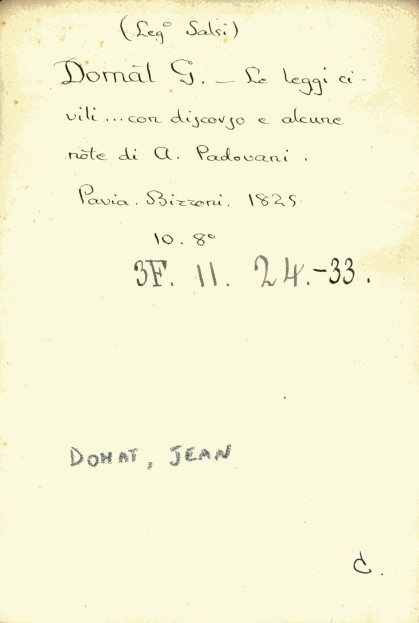 (Leg° Salsi)
Domàt G. - Le leggi ci-
vili... con discorso e alcune
nòte di A. Padovani.
Pavia. Bizzoni. 1825
10. 8°
3F. 11. 24.-33.
DOMAT, JEAN
C.